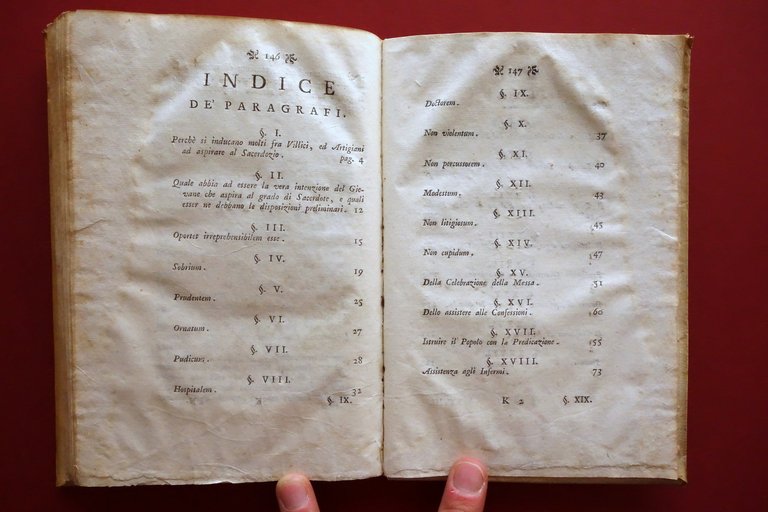 146
INDICE
DE' PARAGRAFI.
§. I.
Perchè si inducano molti fra Villici, ed Artigiani
ad aspirare al Sacerdozio. pag. 4
§. II.
Quale abbia ad essere la vera intenzione del Gio-
vane che aspira al grado di Sacerdote, e quali
esser ne debbano le disposizioni preliminari. 12
§. III.
Oportet irreprehensibilem esse. 15
§. IV.
Sobrium. 19
§. V.
Prudentem. 25
§. VI.
Ornatum. 27
§. VII.
Pudicum. 28
§. VIII.
Hospitalem. 32
§. IX.
147
§. IX.
Doctorem.
§. X.
Non violentum. 37
§. XI.
Non percussorem. 40
§. XII.
Modestum. 43
§. XIII.
Non litigiosum. 45
§. XIV.
Non cupidum. 47
§. XV.
Della Celebrazione della Messa. 51
§. XVI.
Dello assistere alle Confessioni. 60
§. XVII.
Istruire il Popolo con la Predicazione. 55
§. XVIII.
Assistenza agli Infermi. 73
K 2 §. XIX.